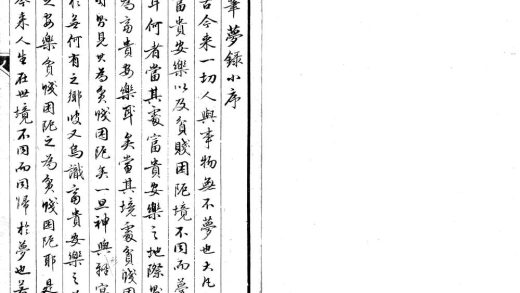 華夢錄小序
古今来一切人與事物無不夢也大凡
富貴安樂以及貧賤困阨境不同而夢
耳何者當其處富貴安樂之地際
為富貴安樂耳矣當其境處貧賤困
見只為貧賤困阨矣一旦神與
於無何有之鄉彼又烏識富貴安樂之
安樂貧賤困阨之為貧賤困阨耶是
今来人生在世境不同而同歸於夢也若